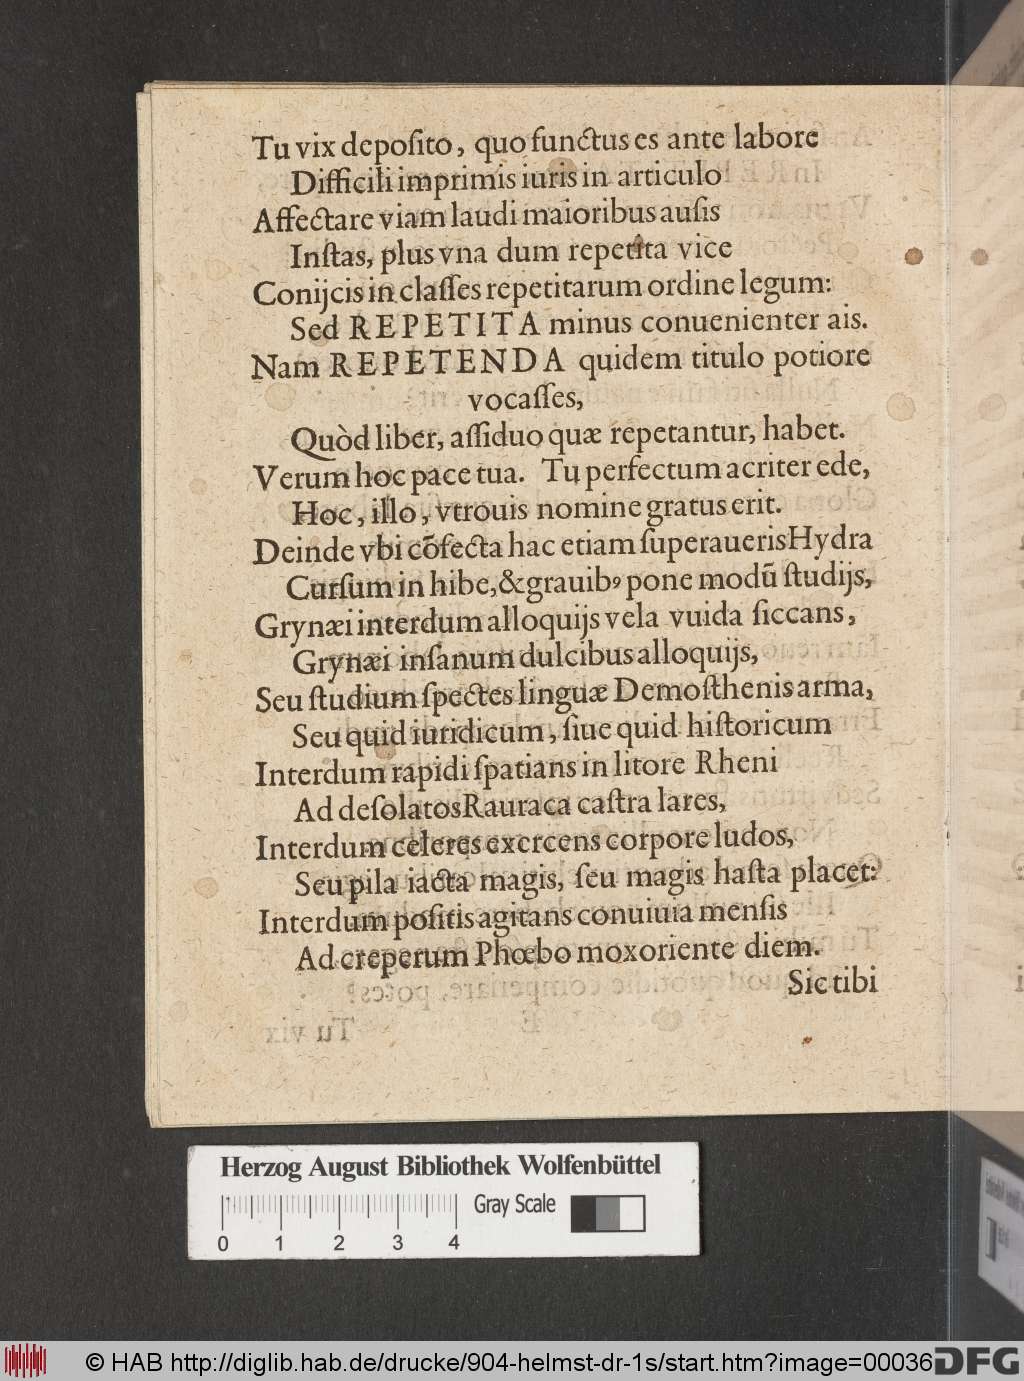 Tu vix depoſito, quo functus es ante labore
Difficili imprimis iuris in articulo
Affectare viam laudi maioribus auſis
Inſtas, plus vna dum repetita vice
Conijcis in claſſes repetitarum ordine legum:
Sed REPETITA minus conuenienter ais.
Nam REPETENDA quidem titulo potiore
vocaſſes,
Quòd liber, aſſiduo quæ repetantur, habet.
Verum hoc pace tua. Tu perfectum acriter ede,
Hoc, illo, vtrouis nomine gratus erit.
Deinde vbi cõfecta hac etiam ſuperaueris Hydra
Curſum in hibe, & grauibꝰ pone modũ ſtudijs,
Grynæi interdum alloquijs vela vuida ſiccans,
Grynæi inſanum dulcibus alloquijs,
Seu ſtudium ſpectes linguæ Demoſthenis arma,
Seu quid iuridicum, ſiue quid hiſtoricum
Interdum rapidi ſpatians in litore Rheni
Ad deſolatos Rauraca caſtra lares,
Interdum celeres exercens corpore ludos,
Seu pila iacta magis, ſeu magis haſta placet:
Interdum poſitis agitans conuiuia menſis
Ad creperum Phœbo mox oriente diem.
Sic tibi
Herzog August Bibliothek Wolfenbüttel
Gray Scale
0 1 2 3 4
© HAB http://diglib.hab.de/drucke/904-helmst-dr-1s/start.htm?image=00036
DFG